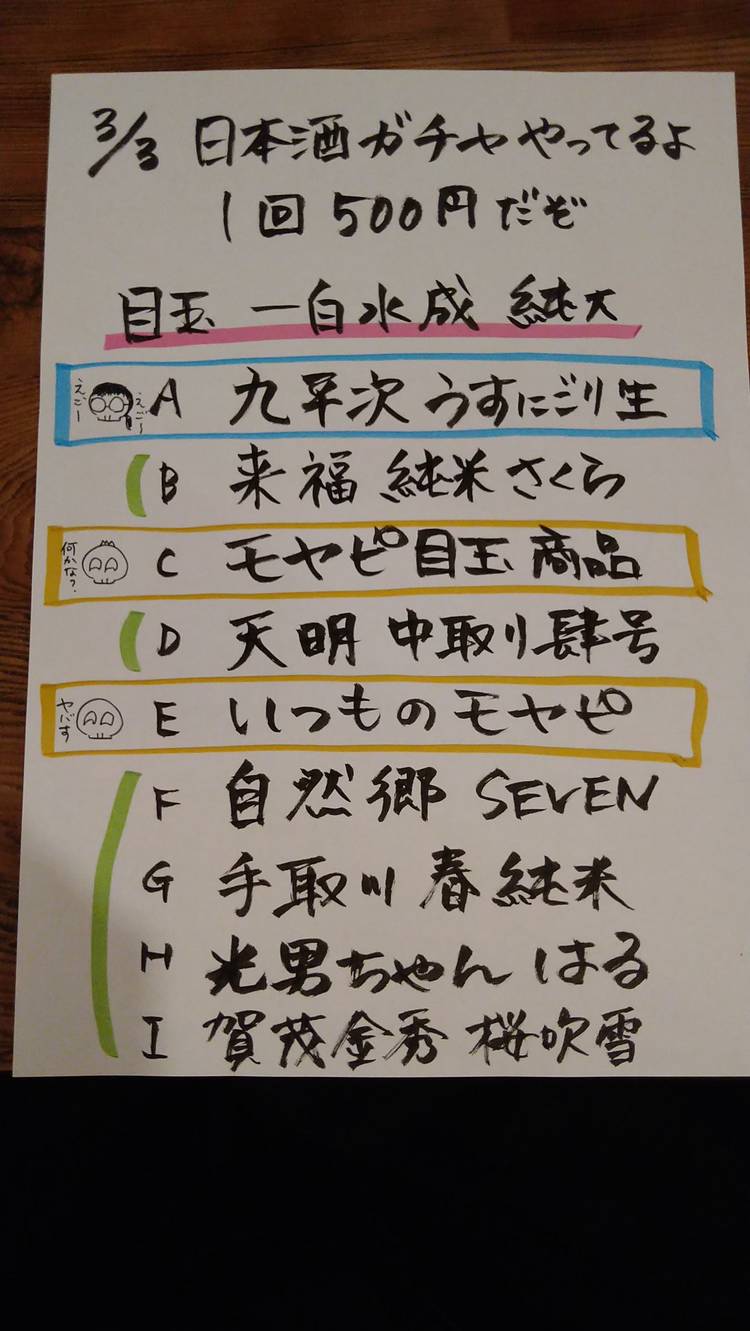 3/3 日本酒ガチャやってるよ
1回500円だぞ
目玉 一白水成 純大
えごー えごー A 九平次 うすにごり生
B 来福 純米 さくら
何かな? C モヤピ目玉商品
D 天明 中取り肆号
ヤバす E いつものモヤピ
F 自然郷 SEVEN
G 手取川 春純米
H 光男ちゃん はる
I 賀茂金秀 桜吹雪